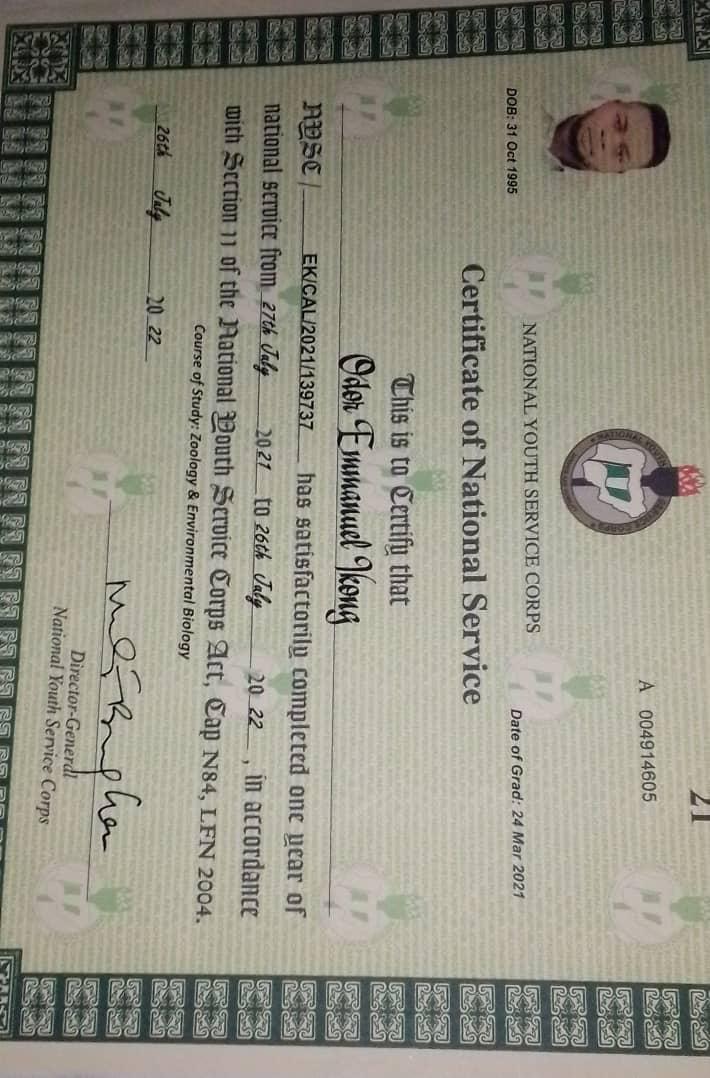 21
A 004914605
NATIONAL YOUTH SERVICE CORPS
DOB: 31 Oct 1995
Date of Grad: 24 Mar 2021
Certificate of National Service
This is to Certify that
Odor Emmanuel Ikong
NYSC / EK/CAL/2021/139737 has satisfactorily completed one year of
national service from 27th July 2021 to 26th July 2022, in accordance
with Section 11 of the National Youth Service Corps Act, Cap N84, LFN 2004.
Course of Study: Zoology & Environmental Biology
26th July 2022
Director-General
National Youth Service Corps